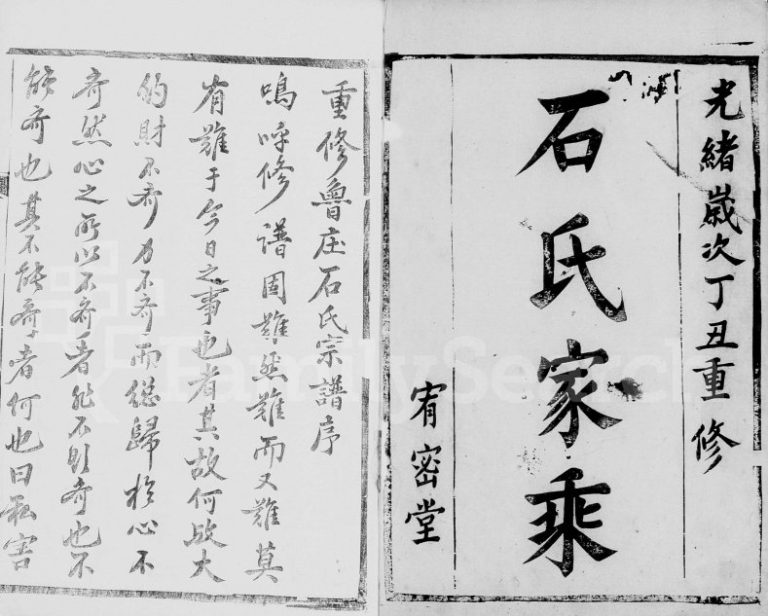 光緒歲次丁丑重修
石氏家乘
宥密堂
重修魯庄石氏宗譜序
嗚呼修譜固難然難而又難莫
有難于今日之事也者其故何歟大
約財不齊力不齊而總歸於心不
齊然心之所以不齊者非不則齊也不
能齊也其不能齊者何也曰私害
FamilySearch